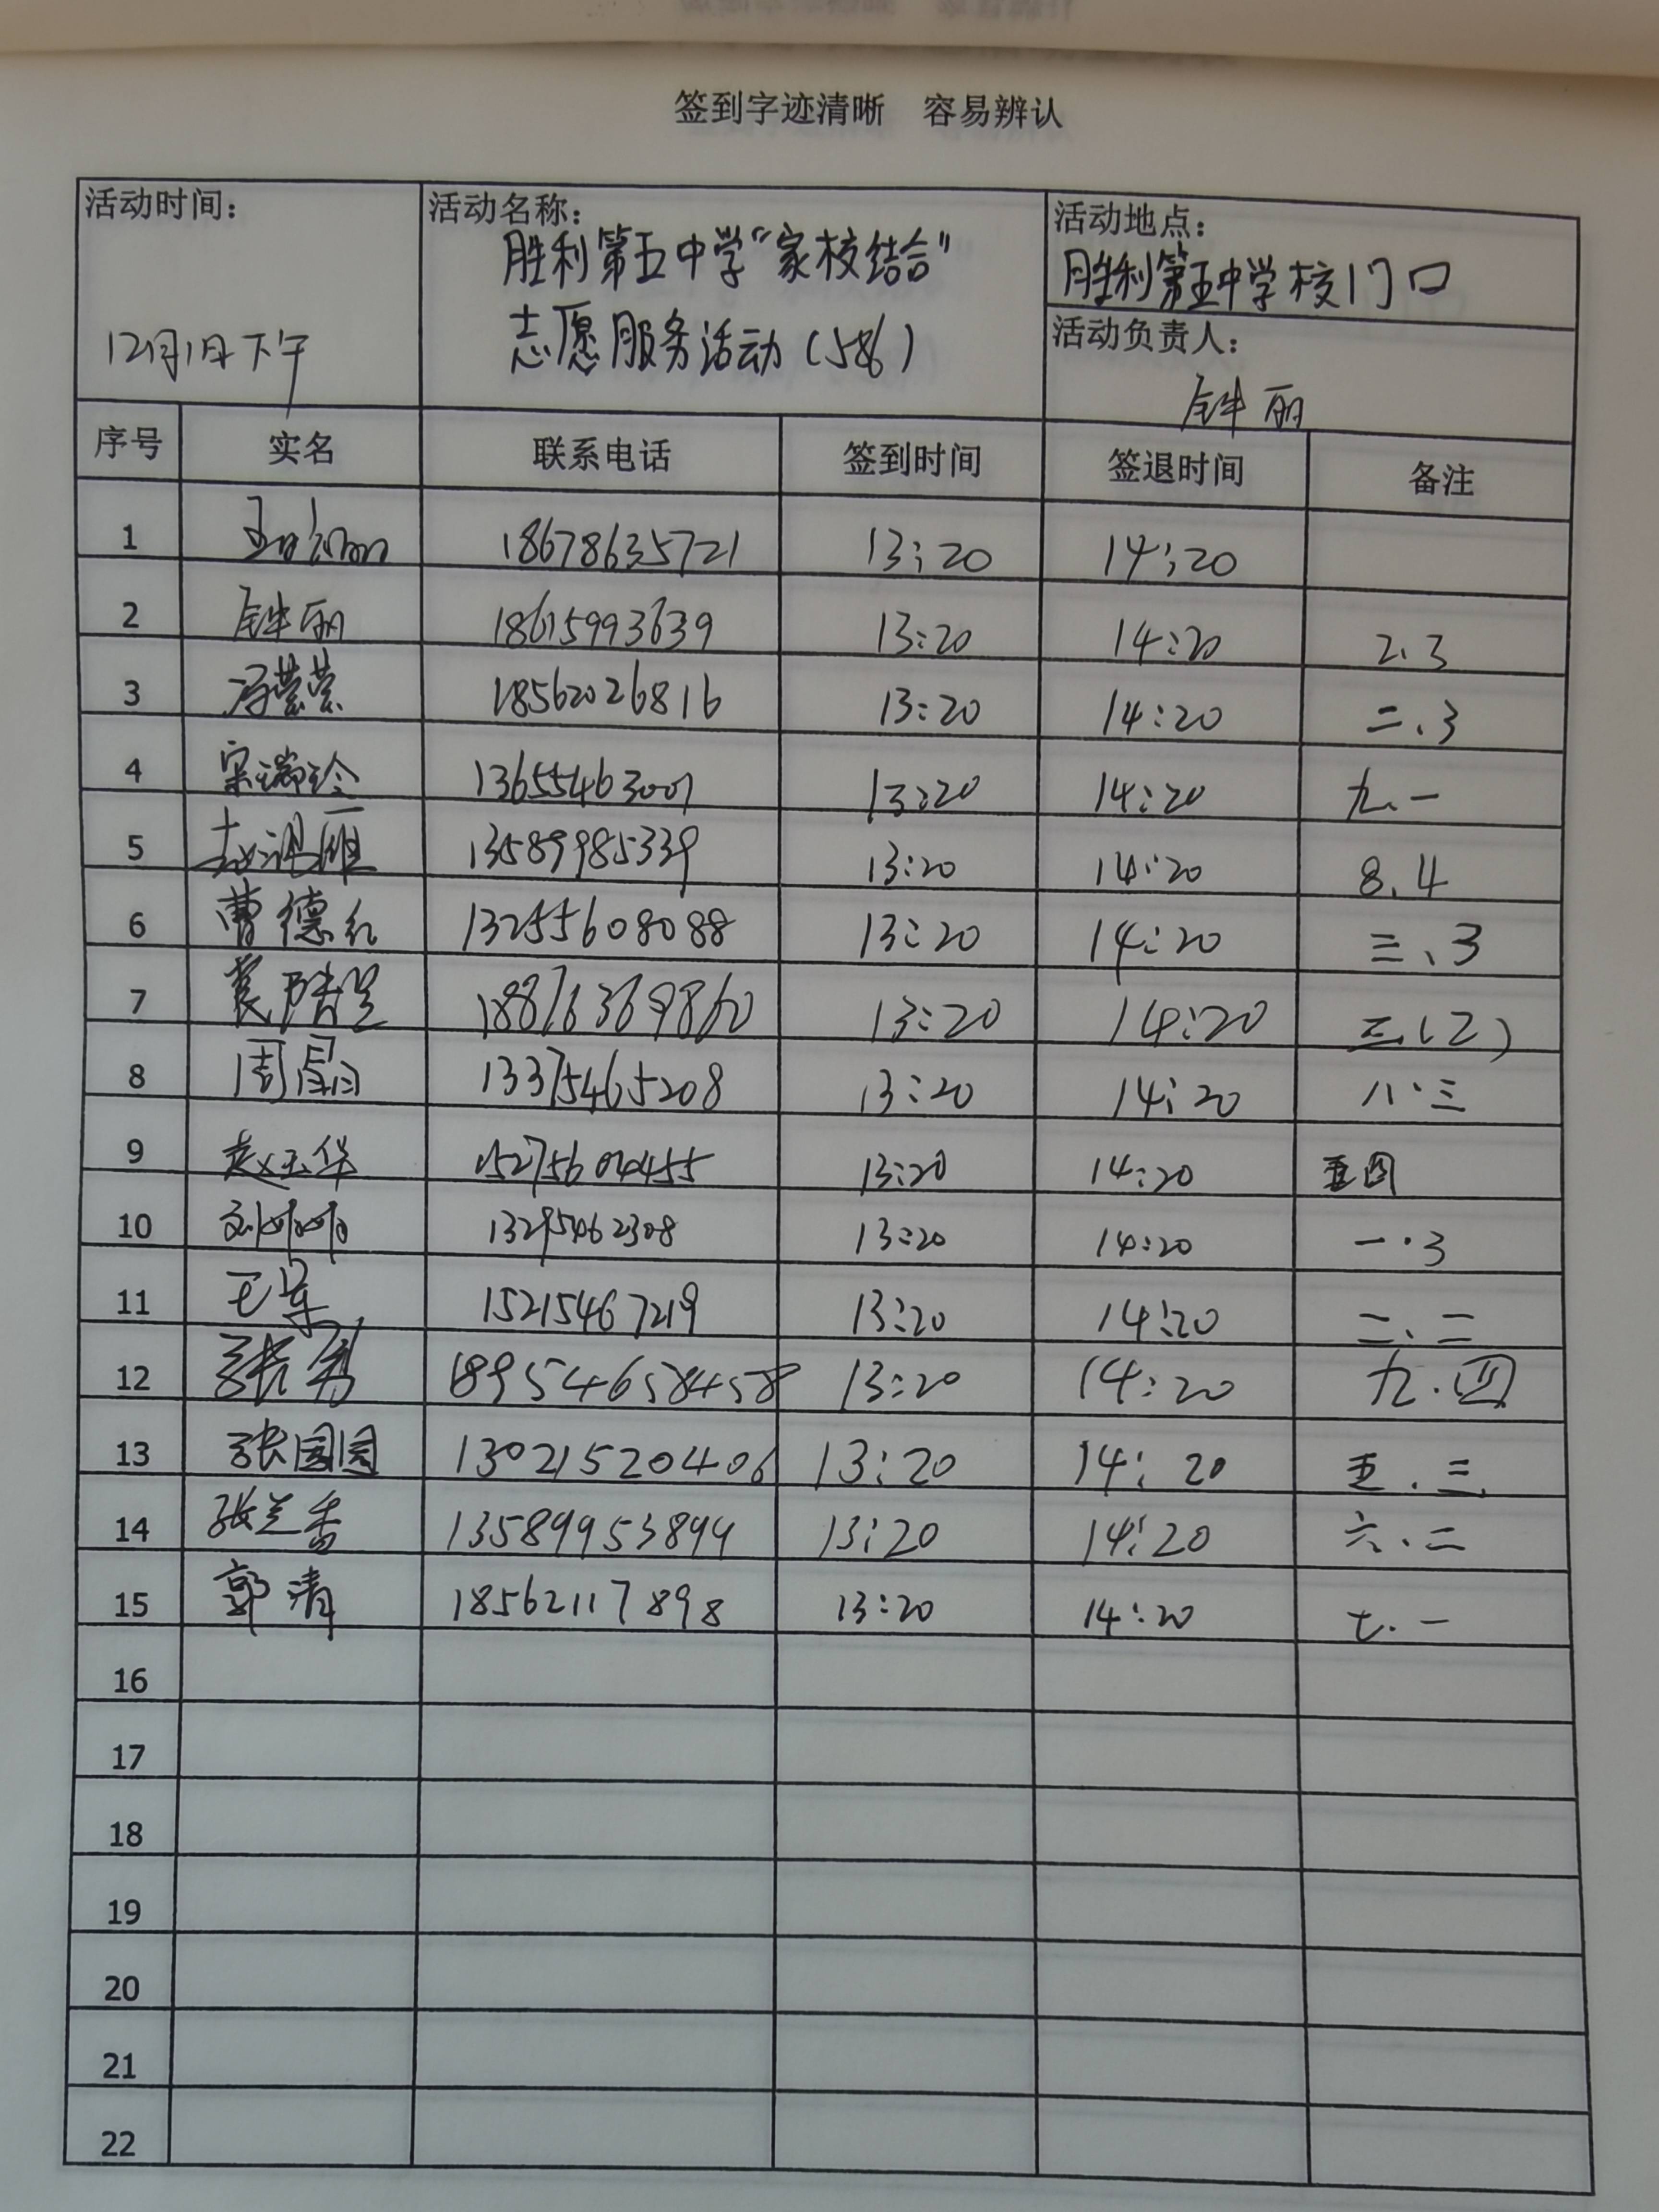 签到字迹清晰 容易辨认
活动时间：
12月1日下午
活动名称：
胜利第五中学“家校结合”
志愿服务活动（586）
活动地点：
胜利第五中学校门口
活动负责人：
丽
序号 实名 联系电话 签到时间 签退时间 备注
1 18678635721 13:20 14:20
2 丽 18615993639 13:20 14:20 2、3
3 冯芸芸 18562026816 13:20 14:20 二、3
4 宋瑞玲 13655463001 13:20 14:20 九、一
5 13589985339 13:20 14:20 8、4
6 曹德红 13255608088 13:20 14:20 三、3
7 18876369860 13:20 14:20 三（2）
8 周晶 13375465208 13:20 14:20 八·三
9 赵玉华 15275604455 13:20 14:20 五四
10 刘娜娜 13295462308 13:20 14:20 一·3
11 王 15215467219 13:20 14:20 二、二
12 张 18954658458 13:20 14:20 九·四
13 张园园 13021520406 13:20 14:20 五·三
14 张兰香 13589953899 13:20 14:20 六、二
15 郭清 18562117898 13:20 14:20 七·一
16
17
18
19
20
21
22